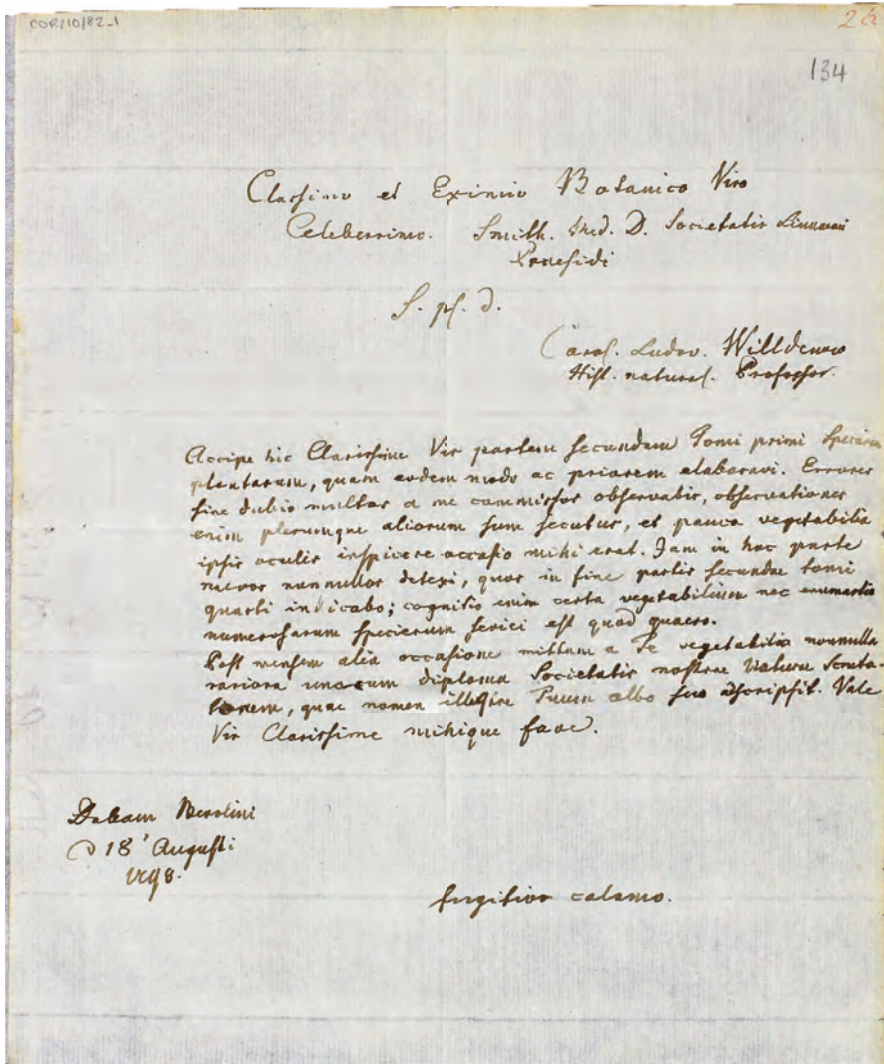 COR/10/82_1
134
Classimo et Eximio Botanico Viro
Celeberrimo. Smith. Med. D. Societatis Linnaeani
Praesidi
S. pl. d.
Carol. Ludov. Willdenow
Hist. natural. Professor.
Accipe hic Clarissime Vir partem secundam Tomi primi Specierum
plantarum, quam eodem modo ac priorem elaboravi. Errores
sine dubio multos a me commissos observabis, observationes
enim plerumque aliorum sum secutus, et pauca vegetabilia
ipsis oculis inspicere occasio mihi erat. Jam in hac parte
naevos nonnullos detexi, quos in fine partis secundae tomi
quarti indicabo; cognitio enim certa vegetabilium nec enumeratio
numerosarum specierum serici est quod quaero.
Post mensem alia occasione mittam a Te vegetabilia nonnulla
rariora unacum diploma Societatis nostrae Naturae Scruta-
torum, quae nomen illustre Tuum albo suo adscripsit. Vale
Vir Clarissime mihique fave.
Dabam Berolini
d 18 Augusti
1798.
fugitivo calamo.